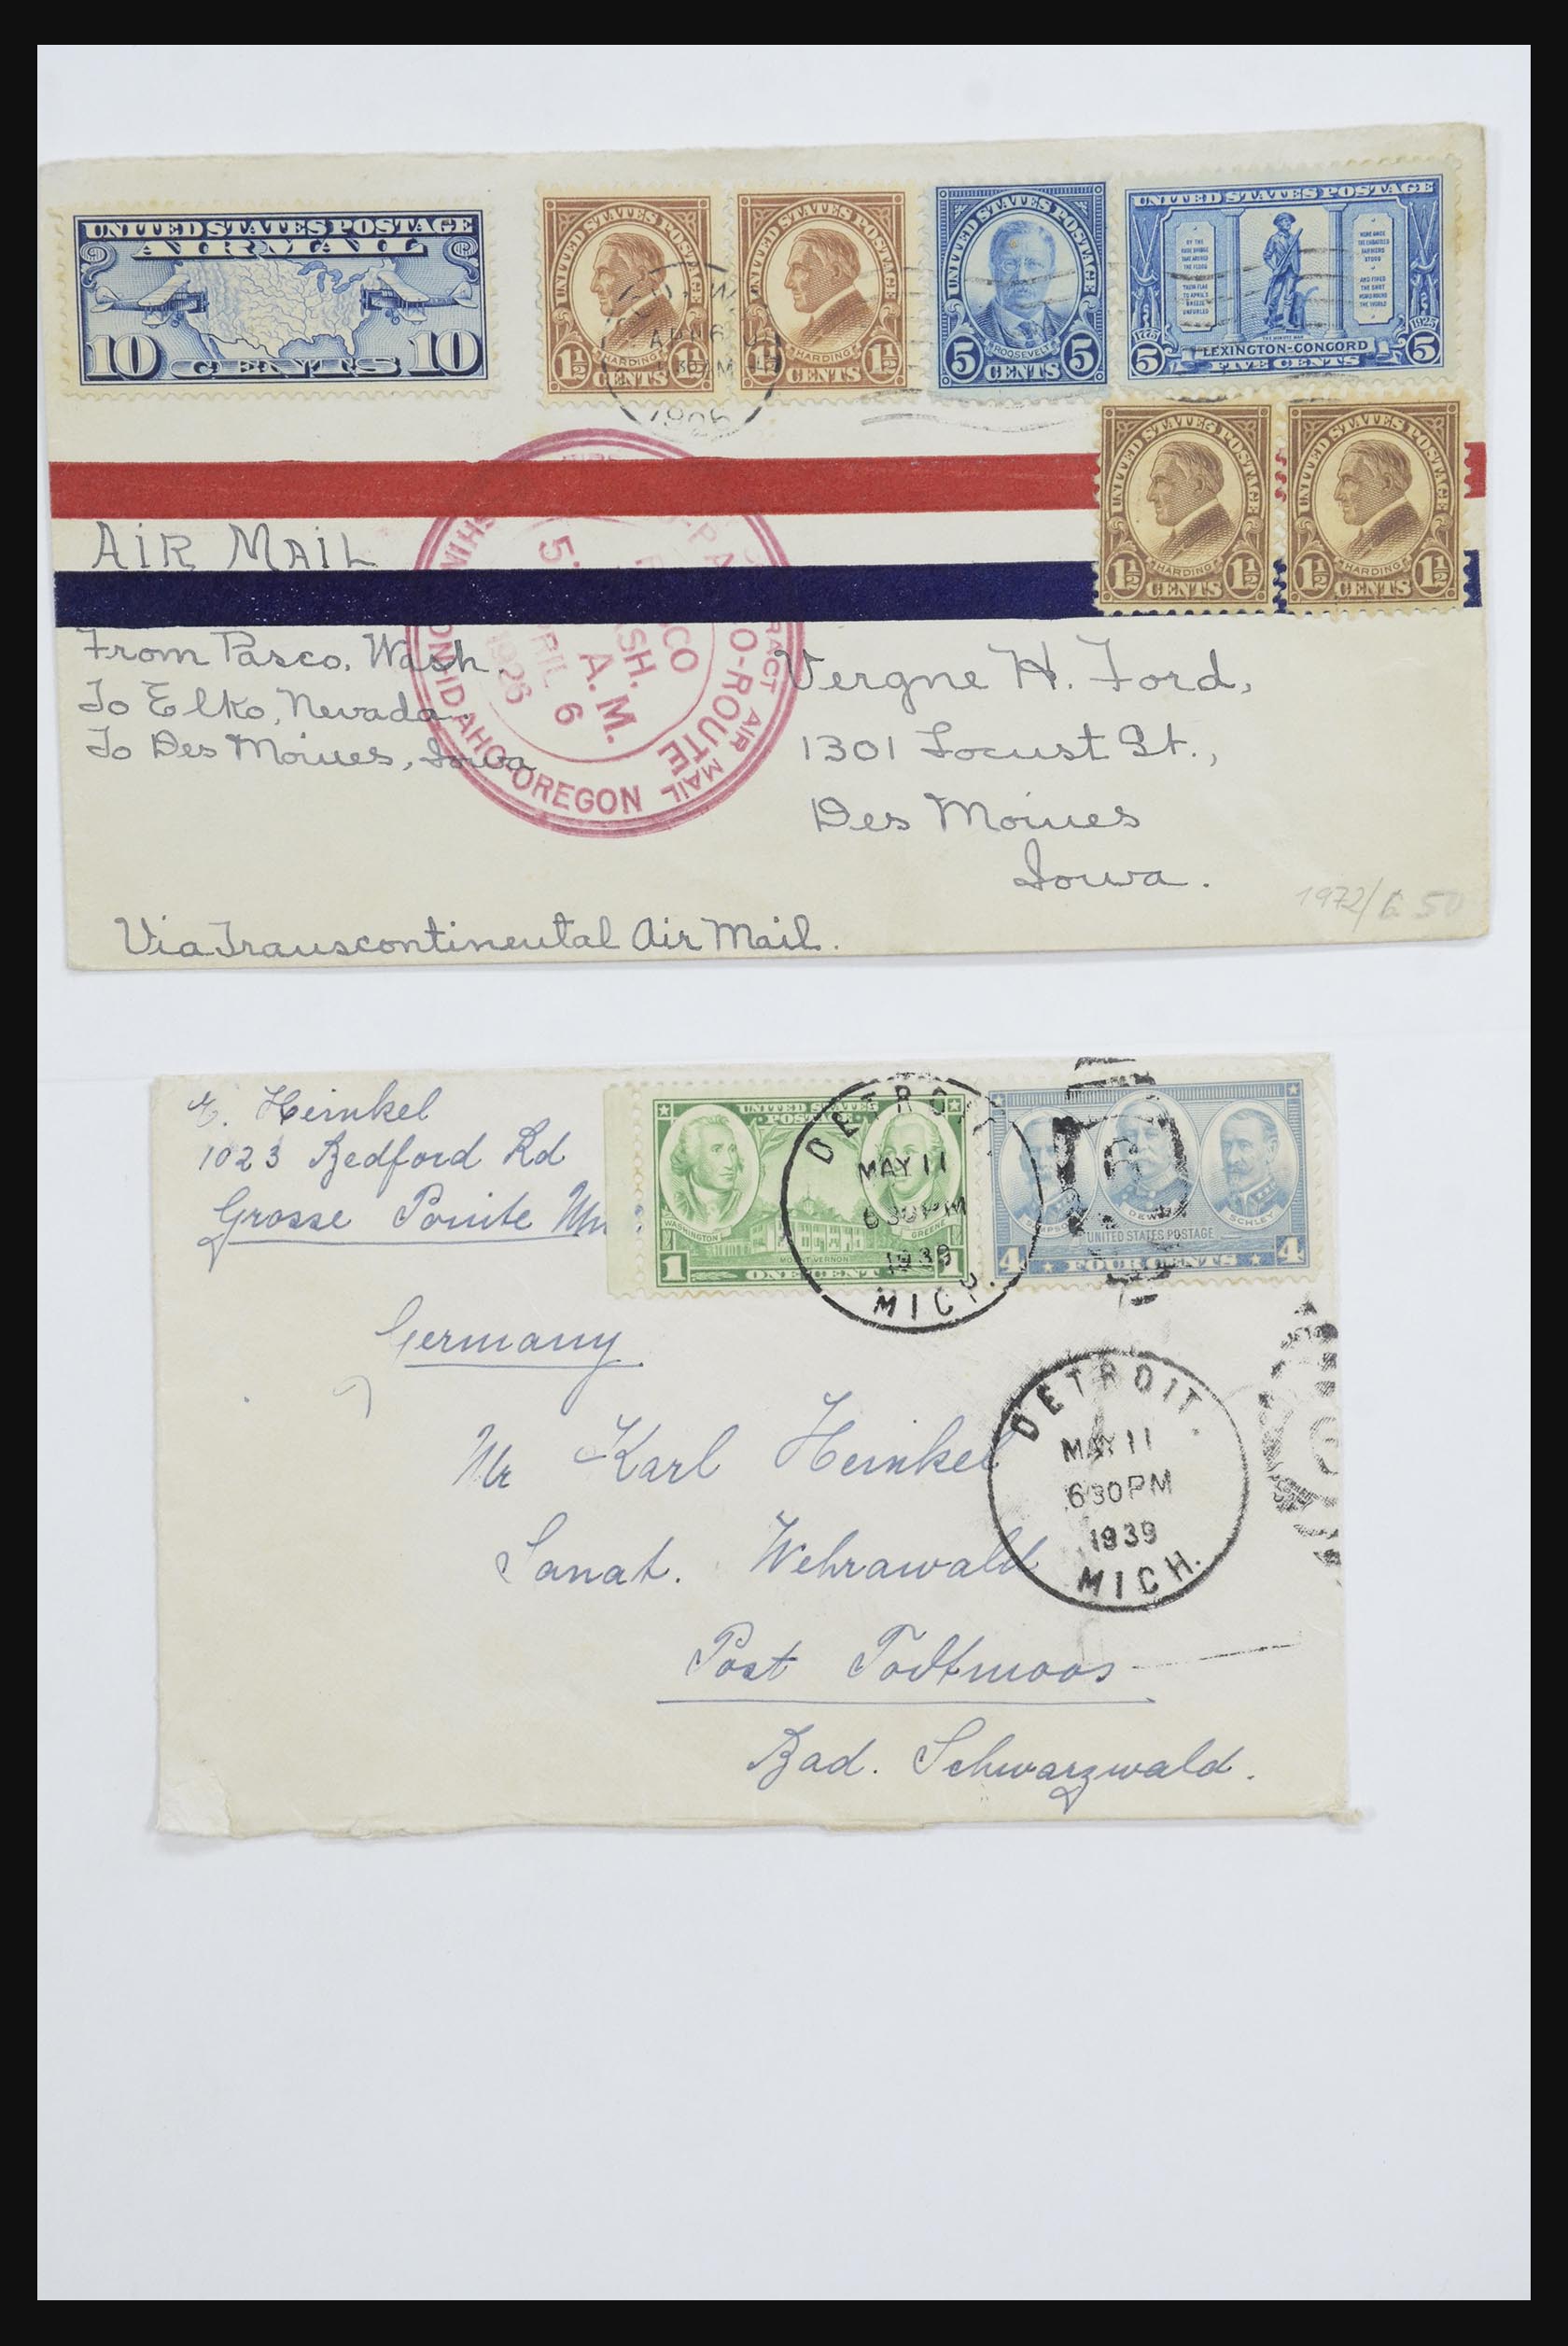 UNITED STATES POSTAGE
AIR MAIL
10 CENTS 10
UNITED STATES POSTAGE
HARDING
1½ CENTS 1½
UNITED STATES POSTAGE
HARDING
1½ CENTS 1½
UNITED STATES POSTAGE
ROOSEVELT
5 CENTS 5
UNITED STATES POSTAGE
BY THE
RUDE BRIDGE
THAT ARCHED
THE FLOOD
THEIR FLAG
TO APRIL'S
BREEZE
UNFURLED
HERE ONCE
THE EMBATTLED
FARMERS
STOOD
AND FIRED
THE SHOT
HEARD ROUND
THE WORLD
1775 1925
5 LEXINGTON-CONCORD 5
FIVE CENTS
1926
UNITED STATES POSTAGE
HARDING
1½ CENTS 1½
UNITED STATES POSTAGE
HARDING
1½ CENTS 1½
AIR MAIL
CONTRACT AIR MAIL
O-ROUTE
IDAHO-OREGON
A. M.
6
1926
From Pasco, Wash.
To Elko, Nevada.
To Des Moines, Iowa
Vergne H. Ford,
1301 Locust St.,
Des Moines
Iowa.
Via Transcontinental Air Mail.
1972/6 50
E. Heinkel
1023 Bedford Rd
Grosse Pointe
UNITED STATES
POSTAGE
WASHINGTON
GREENE
MOUNT VERNON
1 ONE CENT 1
DETROIT
MAY 11
630 PM
1939
MICH.
SAMPSON
DEWEY
SCHLEY
UNITED STATES POSTAGE
4 FOUR CENTS 4
Germany
Mr Karl Heinkel
Sanat. Wehrawald
Post Todtmoos
Bad. Schwarzwald.
DETROIT.
MAY 11
630 PM
1939
MICH.